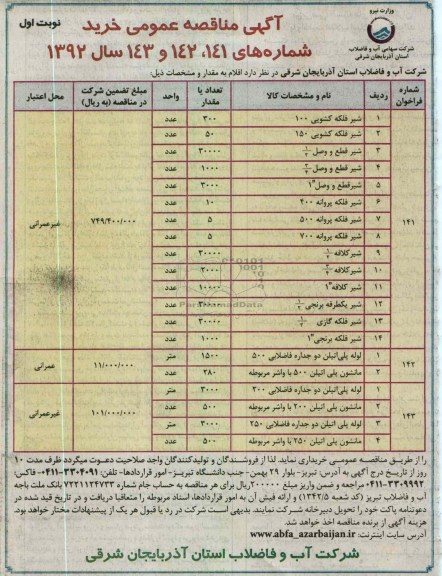 وزارت نیرو
شرکت سهامی آب و فاضلاب
استان آذربایجان شرقی
نوبت اول
آگهی مناقصه عمومی خرید
شماره‌های ۱۴۱، ۱۴۲ و ۱۴۳ سال ۱۳۹۲
شرکت آب و فاضلاب استان آذربایجان شرقی در نظر دارد اقلام به مقدار و مشخصات ذیل:
شماره فراخوان ردیف نام و مشخصات کالا تعداد یا مقدار واحد مبلغ تضمین شرکت در مناقصه (به ریال) محل اعتبار
۱۴۱ ۷۴۹/۴۰۰/۰۰۰ غیرعمرانی
۱ شیر فلکه کشویی ۱۰۰ ۳۰۰ عدد
۲ شیر فلکه کشویی ۱۵۰ ۵۰ عدد
۳ شیر قطع و وصل ۱/۲ ۳۰۰۰۰ عدد
۴ شیر قطع و وصل ۱۰۰۰ عدد
۵ شیرقطع و وصل ۱" ۳۰۰۰ عدد
۶ شیر فلکه پروانه ۴۰۰ ۱۰ عدد
۷ شیر فلکه پروانه ۵۰۰ ۵ عدد
۸ شیر فلکه پروانه ۷۰۰ ۵ عدد
۹ شیرکلافه ۱/۲ ۳۰۰۰۰ عدد
۱۰ شیرکلافه ۳۰۰۰ عدد
۱۱ شیر کلافه ۱" ۱۰۰۰۰ عدد
۱۲ شیر یکطرفه برنجی ۱/۲ عدد
۱۳ شیر فلکه گازی ۱/۲ ۳۰۰۰۰ عدد
۱۴ شیر فلکه برنجی ۱" ۱۰۰۰ عدد
۱۴۲ ۱۱/۰۰۰/۰۰۰ عمرانی
۱ لوله پلی‌اتیلن دو جداره فاضلابی ۵۰۰ ۱۵۰۰ متر
۲ مانشون پلی اتیلن ۵۰۰ با واشر مربوطه ۲۸۰ عدد
۱۴۳ ۱۰۱/۰۰۰/۰۰۰ غیرعمرانی
۱ لوله پلی‌اتیلن دو جداره فاضلابی ۲۰۰ ۳۰۰۰ متر
۲ مانشون پلی اتیلن ۲۰۰ با واشر مربوطه ۵۰۰ عدد
۳ لوله پلی اتیلن دو جداره فاضلابی ۲۵۰ ۳۰۰۰ متر
۴ مانشون پلی اتیلن ۲۵۰ با واشر مربوطه ۵۰۰ عدد
را از طریق مناقصه عمومی خریداری نماید، لذا از فروشندگان و تولیدکنندگان واجد صلاحیت دعوت میگردد ظرف مدت ۱۰
روز از تاریخ درج آگهی به آدرس: تبریز- بلوار ۲۹ بهمن- جنب دانشگاه تبریز- امور قراردادها- تلفن: ۳۳۰۴۰۹۱-۰۴۱۱ فاکس:
۳۳۰۹۹۹۲-۰۴۱۱ مراجعه و ضمن واریز مبلغ ۲۰۰۰۰۰ ریال برای هر مناقصه به حساب جام شماره ۷۲۲۱۱۲۴۷۳۳ بانک ملت باجه
آب و فاضلاب تبریز (کد شعبه ۱۳۴۲/۵) و ارائه فیش آن به امور قراردادها، اسناد مربوطه را متعاقبا دریافت و در تاریخ قید شده در
دعوتنامه پاکت خود را تحویل دبیرخانه شرکت نمایند. بدیهی است شرکت در رد یا قبول هر یک از پیشنهادات مختار خواهد بود.
هزینه آگهی از برنده مناقصه اخذ خواهد شد.
آدرس سایت اینترنت: www.abfa_azarbaijan.ir
شرکت آب و فاضلاب استان آذربایجان شرقی